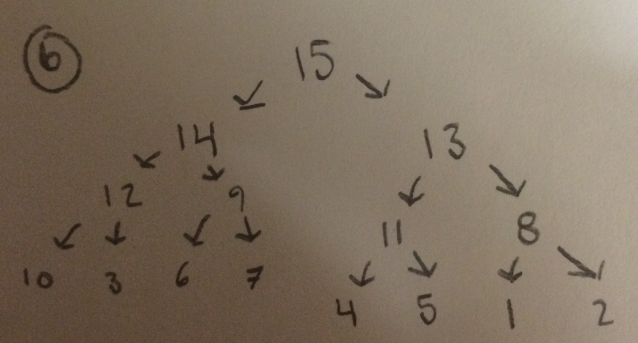 6
15
14 13
12 9 11 8
10 3 6 7 4 5 1 2